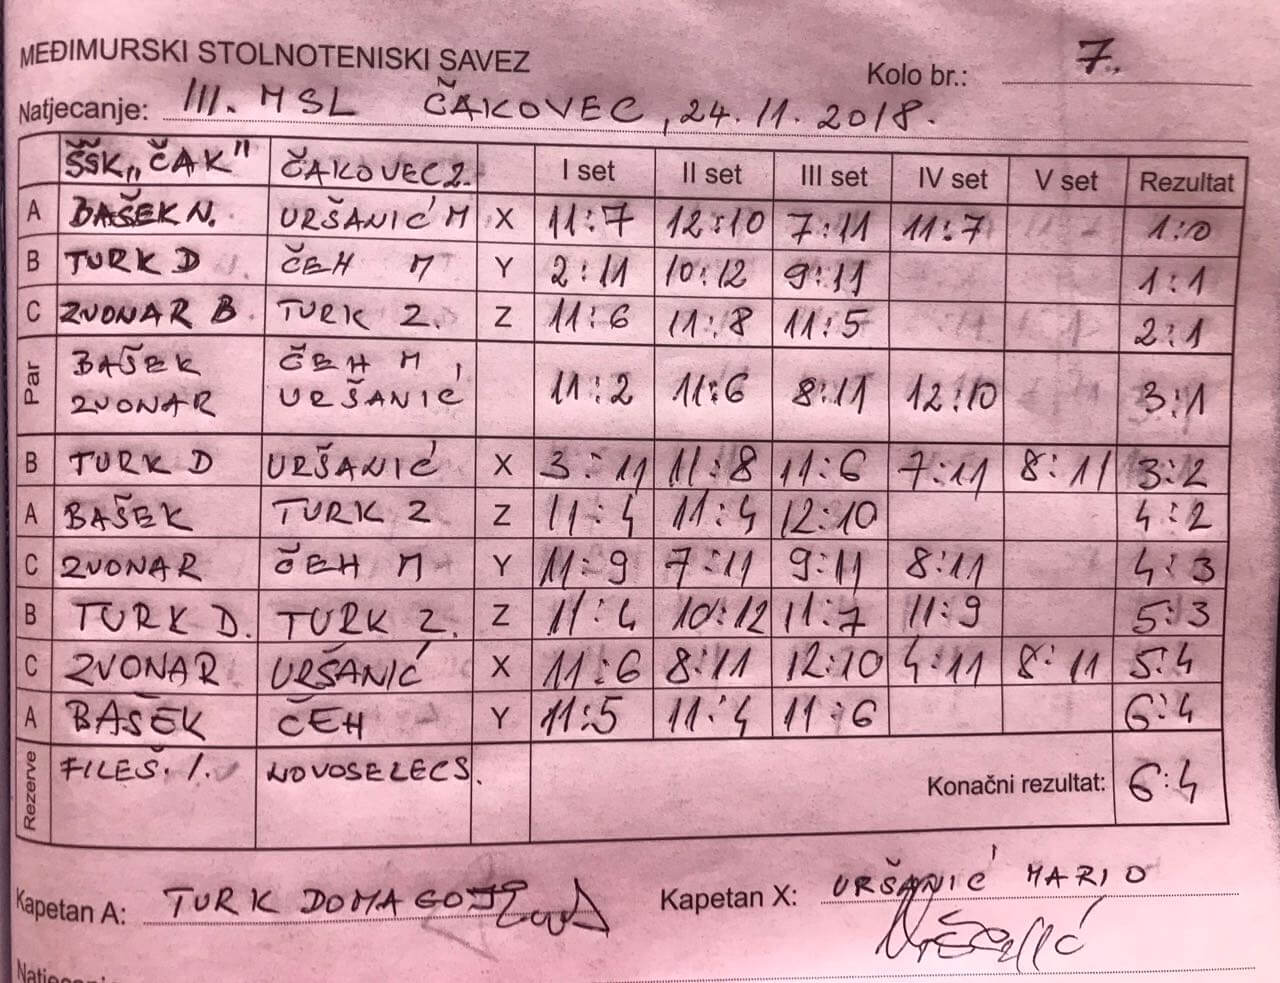 MEĐIMURSKI STOLNOTENISKI SAVEZ
Kolo br.: 7.
Natjecanje: III. MSL ČAKOVEC, 24.11.2018.
ŠŠK „ČAK" ČAKOVEC 2. I set II set III set IV set V set Rezultat
A BAŠEK N. URŠANIĆ M X 11:7 12:10 7:11 11:7 1:0
B TURK D ČEH M Y 2:11 10:12 9:11 1:1
C ZVONAR B TURK Z. Z 11:6 11:8 11:5 2:1
Par BAŠEK ZVONAR ČEH M URŠANIĆ 11:2 11:6 8:11 12:10 3:1
B TURK D URŠANIĆ X 3:11 11:8 11:6 7:11 8:11 3:2
A BAŠEK TURK Z Z 11:4 11:4 12:10 4:2
C ZVONAR ČEH M Y 11:9 7:11 9:11 8:11 4:3
B TURK D. TURK Z. Z 11:4 10:12 11:7 11:9 5:3
C ZVONAR URŠANIĆ X 11:6 8:11 12:10 4:11 8:11 5:4
A BAŠEK ČEH Y 11:5 11:4 11:6 6:4
Rezerve FILEŠ. I. NOVOSELEC S. Konačni rezultat: 6:4
Kapetan A: TURK DOMAGOJ Kapetan X: URŠANIĆ MARIO